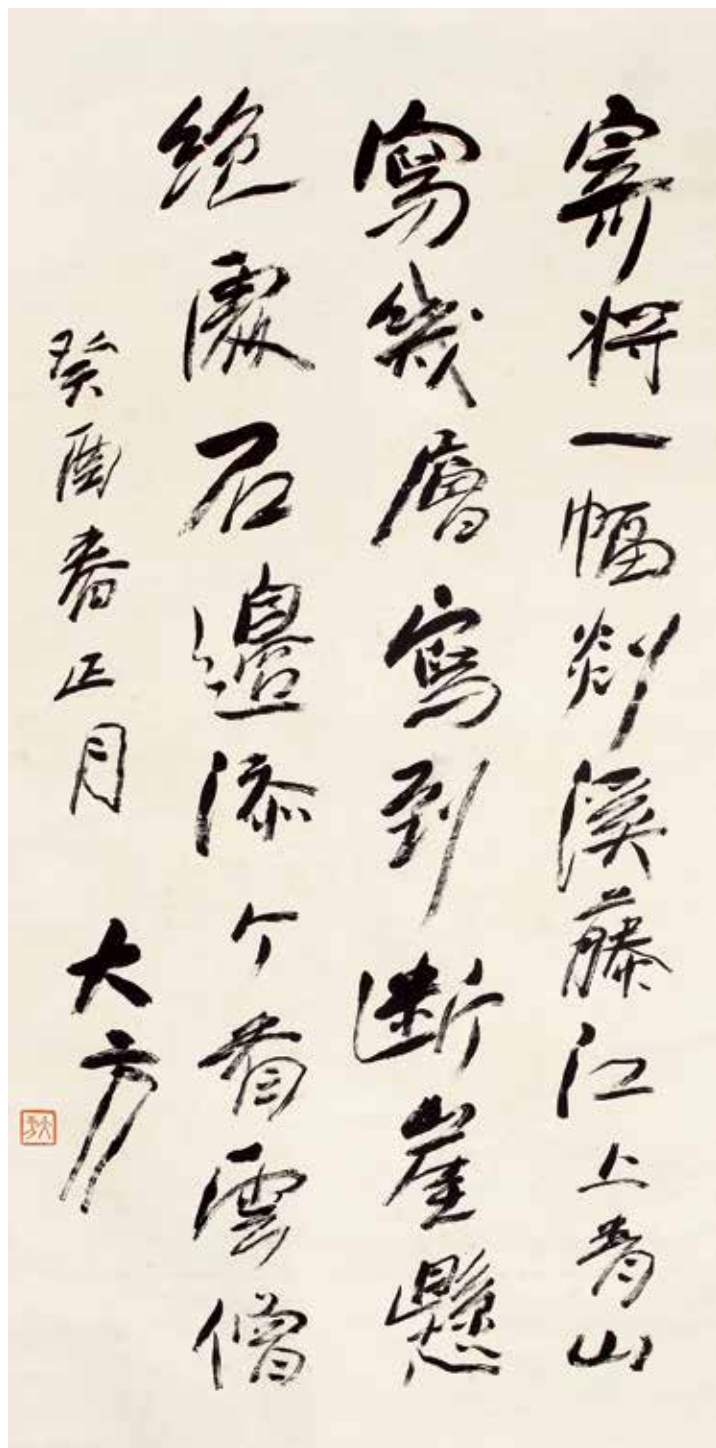 寄將一幅剡溪藤江上青山
寫幾層寫到斷崖懸
絕處石邊添个看雲僧
癸酉春正月
大方